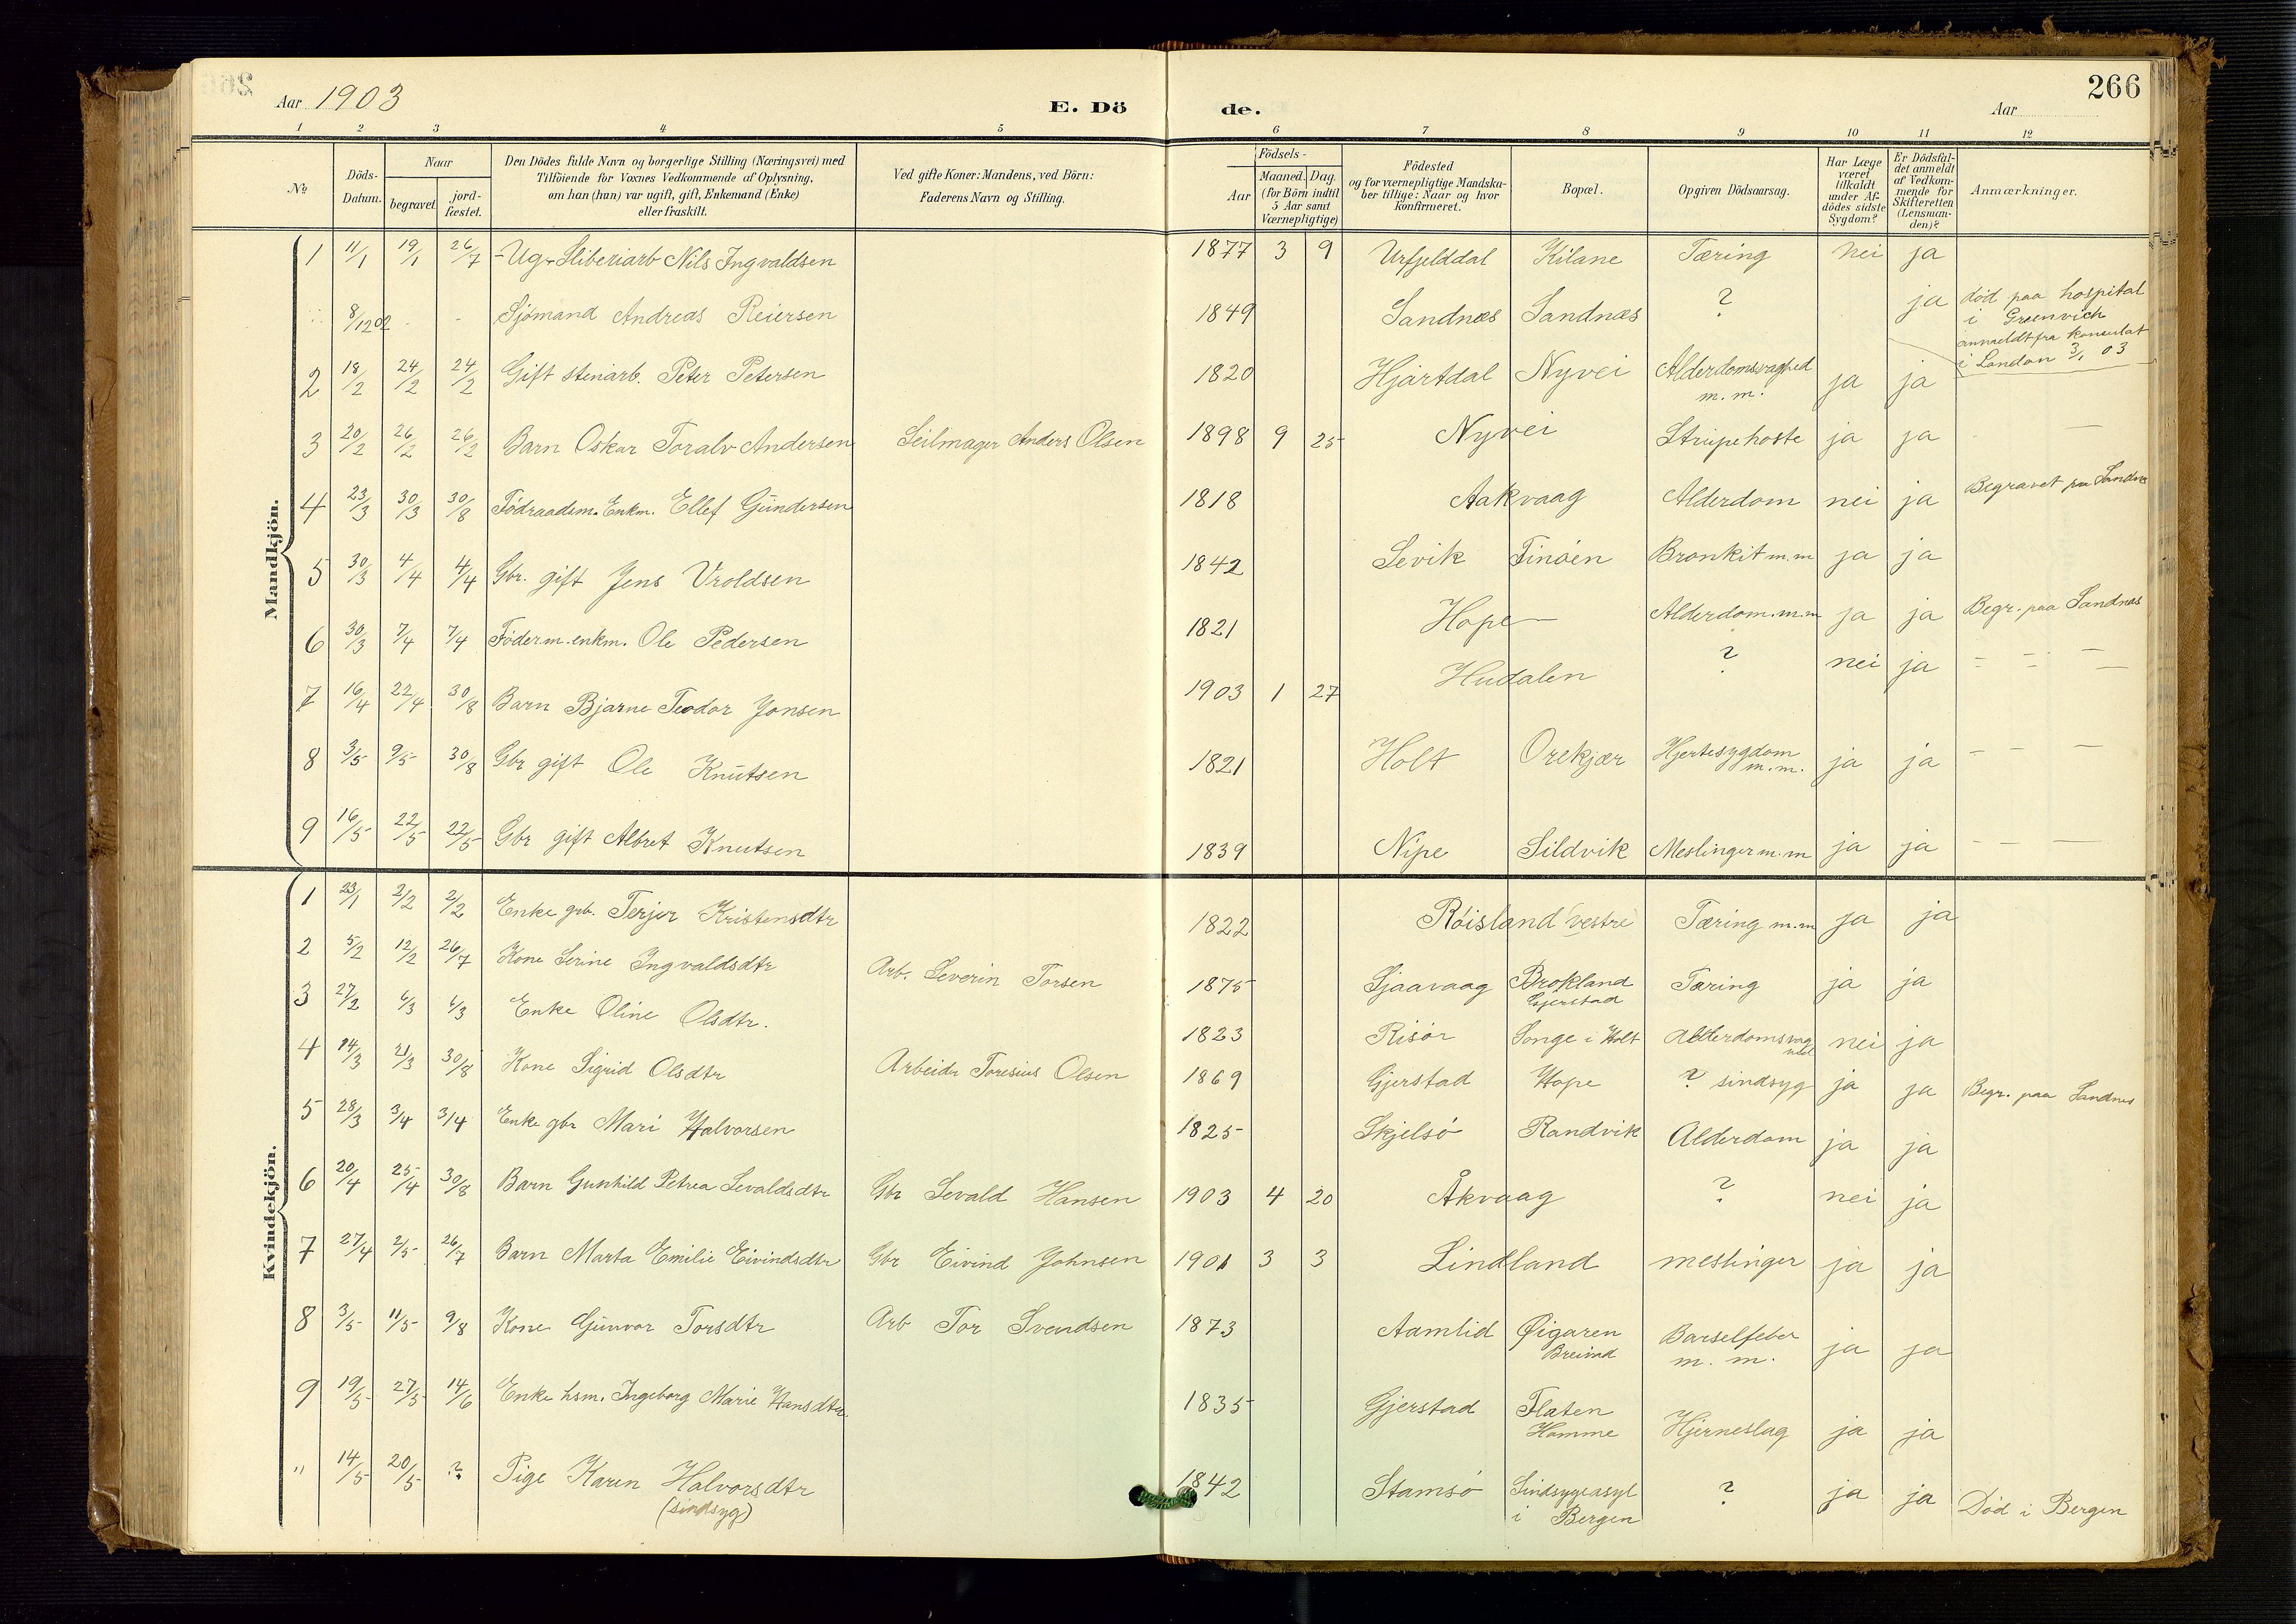 Aar 1903 E. Dö de. Aar 266
1 2 3 4 5 6 7 8 9 10 11 12
No
Döds-Datum.
Naar
begravet
jord-fæstet.
Den Dödes fulde Navn og borgerlige Stilling (Næringsvei) med
Tilföiende for Voxnes Vedkommende af Oplysning,
om han (hun) var ugift, gift, Enkemand (Enke)
eller fraskilt.
Ved gifte Koner: Mandens, ved Börn:
Faderens Navn og Stilling.
Födsels-
Aar
Maaned. Dag.
(for Börn indtil
5 Aar samt
Værnepligtige)
Födested
og for værnepligtige Mandska-
ber tillige: Naar og hvor
konfirmeret.
Bopæl.
Opgiven Dödsaarsag.
Har Læge
været
tilkaldt
under Af-
dödes sidste
Sygdom?
Er Dödsfal-
det anmeldt
af Vedkom-
mende for
Skifteretten
(Lensman-
den)?
Anmærkninger.
Mandkjön.
1 11/1 19/1 26/7 Ug. Sliberiarb Nils Ingvaldsen 1877 3 9 Urfjelddal Kilane Tæring nei ja
8/12 02 - - Sjömand Andreas Reiersen 1849 Sandnæs Sandnæs ? ja død paa hospital
i Greenvich
anmeldt fra konsulat
i London 3/1 03
2 18/2 24/2 24/2 Gift stenarb. Peter Petersen 1820 Hjartdal Nyvei Alderdomsvaghed
m. m. ja ja
3 20/2 26/2 26/2 Barn Oskar Toralv Andersen Seilmager Anders Olsen 1898 9 25 Nyvei Strupehoste ja ja —
4 23/3 30/3 30/8 Födraadsm. Enkm. Ellef Gundersen 1818 Aakvaag Alderdom nei ja Begravet paa Sandnes
5 30/3 4/4 4/4 Gbr. gift Jens Vroldsen 1842 Sevik Finöen Bronkit m.m ja ja
6 30/3 7/4 7/4 Föderm. enkm. Ole Pedersen 1821 Hope Alderdom.m.m ja ja Begr. paa Sandnes
7 16/4 22/4 30/8 Barn Bjarne Teodor Jonsen 1903 1 27 Hudalen ? nei ja — — —
8 3/5 9/5 30/8 Gbr gift Ole Knutsen 1821 Holt Orekjær Hjertesygdom
m.m. ja ja — — —
9 16/5 22/5 22/5 Gbr gift Albret Knutsen 1839 Nipe Sildvik Meslinger m.m ja ja — — —
Kvindekjön.
1 23/1 2/2 2/2 Enke grb. Terjer Kristensdtr 1822 Röisland vestre Tæring m.m ja ja
2 5/2 12/2 26/7 Kone Serine Ingvaldsdtr Arb. Severin Torsen 1875 Sjaavaag Brokland
Gjerstad Tæring ja ja
3 27/2 6/3 6/3 Enke Oline Olsdtr. 1823 Risör Songe i Holt Alderdomsvag
hed nei ja
4 14/3 21/3 30/8 Kone Sigrid Olsdtr Arbeider Toresius Olsen 1869 Gjerstad Hope ? sindsyg ja ja Begr. paa Sandnes
5 28/3 3/4 3/4 Enke gbr Mari Halvorsen 1825 Skjelsö Randvik Alderdom ja ja
6 20/4 25/4 30/8 Barn Gunhild Petrea Sevaldsdtr Gbr Sevald Hansen 1903 4 20 Åkvaag ? nei ja
7 27/4 2/5 26/7 Barn Marta Emilie Eivindsdtr Gbr Eivind Johnsen 1901 3 3 Lindland meslinger ja ja
8 3/5 11/5 9/8 Kone Gunvor Torsdtr Arb Tor Svendsen 1873 Aamlid Øigaren
Breivad Barselfeber
m. m. ja ja
9 19/5 27/5 14/6 Enke hsm. Ingeborg Marie Hansdtr 1835 Gjerstad Flaten
Homme Hjerneslag ja ja
" 14/5 20/5 ? Pige Karen Halvorsdtr
(sindsyg) 1842 Stamsö Sindsygeasyl
i Bergen ? ja ja Död i Bergen